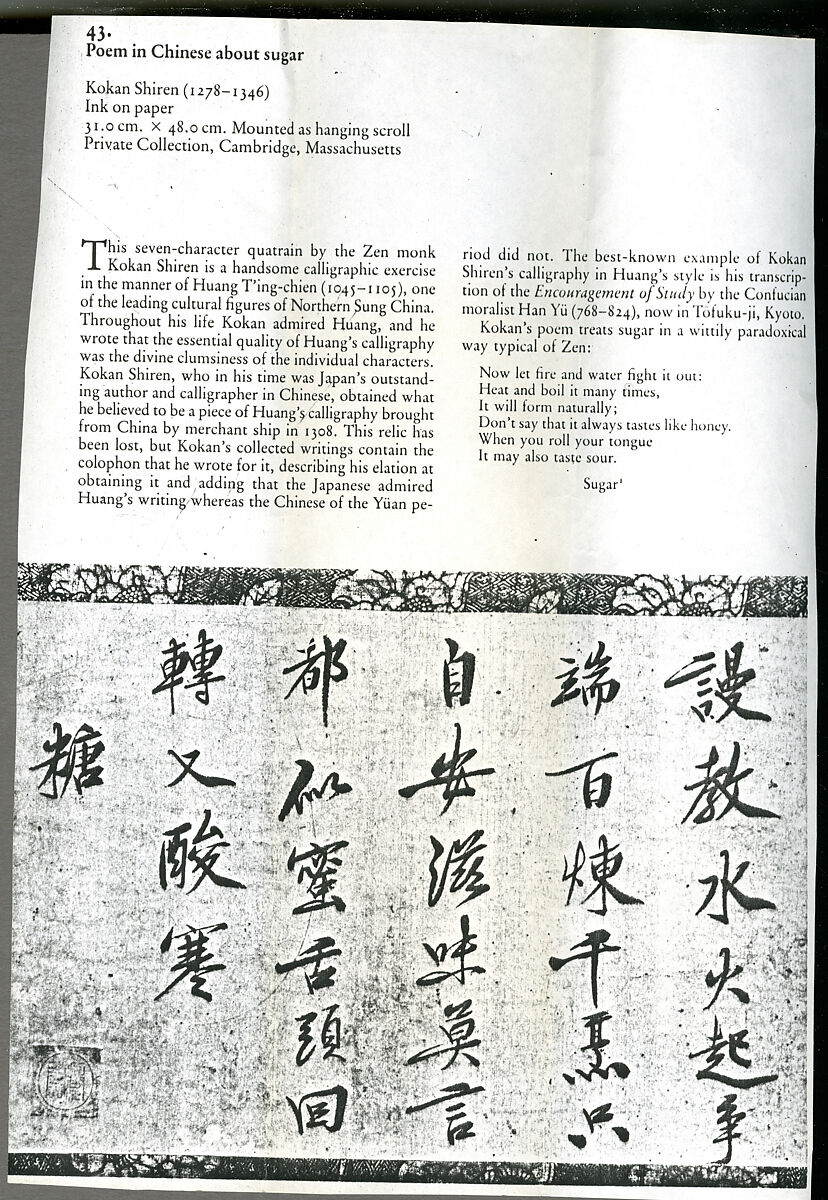 43.
Poem in Chinese about sugar
Kokan Shiren (1278–1346)
Ink on paper
31.0 cm. × 48.0 cm. Mounted as hanging scroll
Private Collection, Cambridge, Massachusetts
This seven-character quatrain by the Zen monk
Kokan Shiren is a handsome calligraphic exercise
in the manner of Huang T'ing-chien (1045–1105), one
of the leading cultural figures of Northern Sung China.
Throughout his life Kokan admired Huang, and he
wrote that the essential quality of Huang's calligraphy
was the divine clumsiness of the individual characters.
Kokan Shiren, who in his time was Japan's outstand-
ing author and calligrapher in Chinese, obtained what
he believed to be a piece of Huang's calligraphy brought
from China by merchant ship in 1308. This relic has
been lost, but Kokan's collected writings contain the
colophon that he wrote for it, describing his elation at
obtaining it and adding that the Japanese admired
Huang's writing whereas the Chinese of the Yüan pe-
riod did not. The best-known example of Kokan
Shiren's calligraphy in Huang's style is his transcrip-
tion of the Encouragement of Study by the Confucian
moralist Han Yü (768–824), now in Tōfuku-ji, Kyoto.
Kokan's poem treats sugar in a wittily paradoxical
way typical of Zen:
Now let fire and water fight it out:
Heat and boil it many times,
It will form naturally;
Don't say that it always tastes like honey.
When you roll your tongue
It may also taste sour.
Sugar¹
謾教水火起爭
端百煉千烹只
自安滋味莫言
都似蜜舌頭回
轉又酸寒
糖